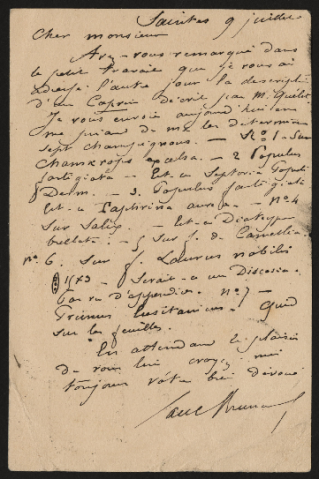 Saintes 9 juillet
Cher monsieur
Avez-vous remarqué dans
le petit travail que je vous ai
adressé l'autre jour la descript
d'un Coprin décrit par M. Quélet
Je vous envoie aujourd'hui en
me priant de me les déterminer
sept champignons. — No 1. Sur
Chamaerops excelsa. — 2 Populus
fastigiata — Est-ce Septoria Populi
Desm. — 3. Populus fastigiata
Est-ce Taphrina aurea — no 4
Sur Salix — Est-ce Diatrype
bullata. — 5 Sur f. de Camellia
no 6. Sur f. Laurus nobilis
1/5 x 3 — Serait-ce un Discosia
pas vu d'appendices no 7 —
Prunus lusitanica. Quid
sur les feuilles.
En attendant le plaisir
de vous lire croyez moi
toujours votre bien dévoué
Paul Brunaud